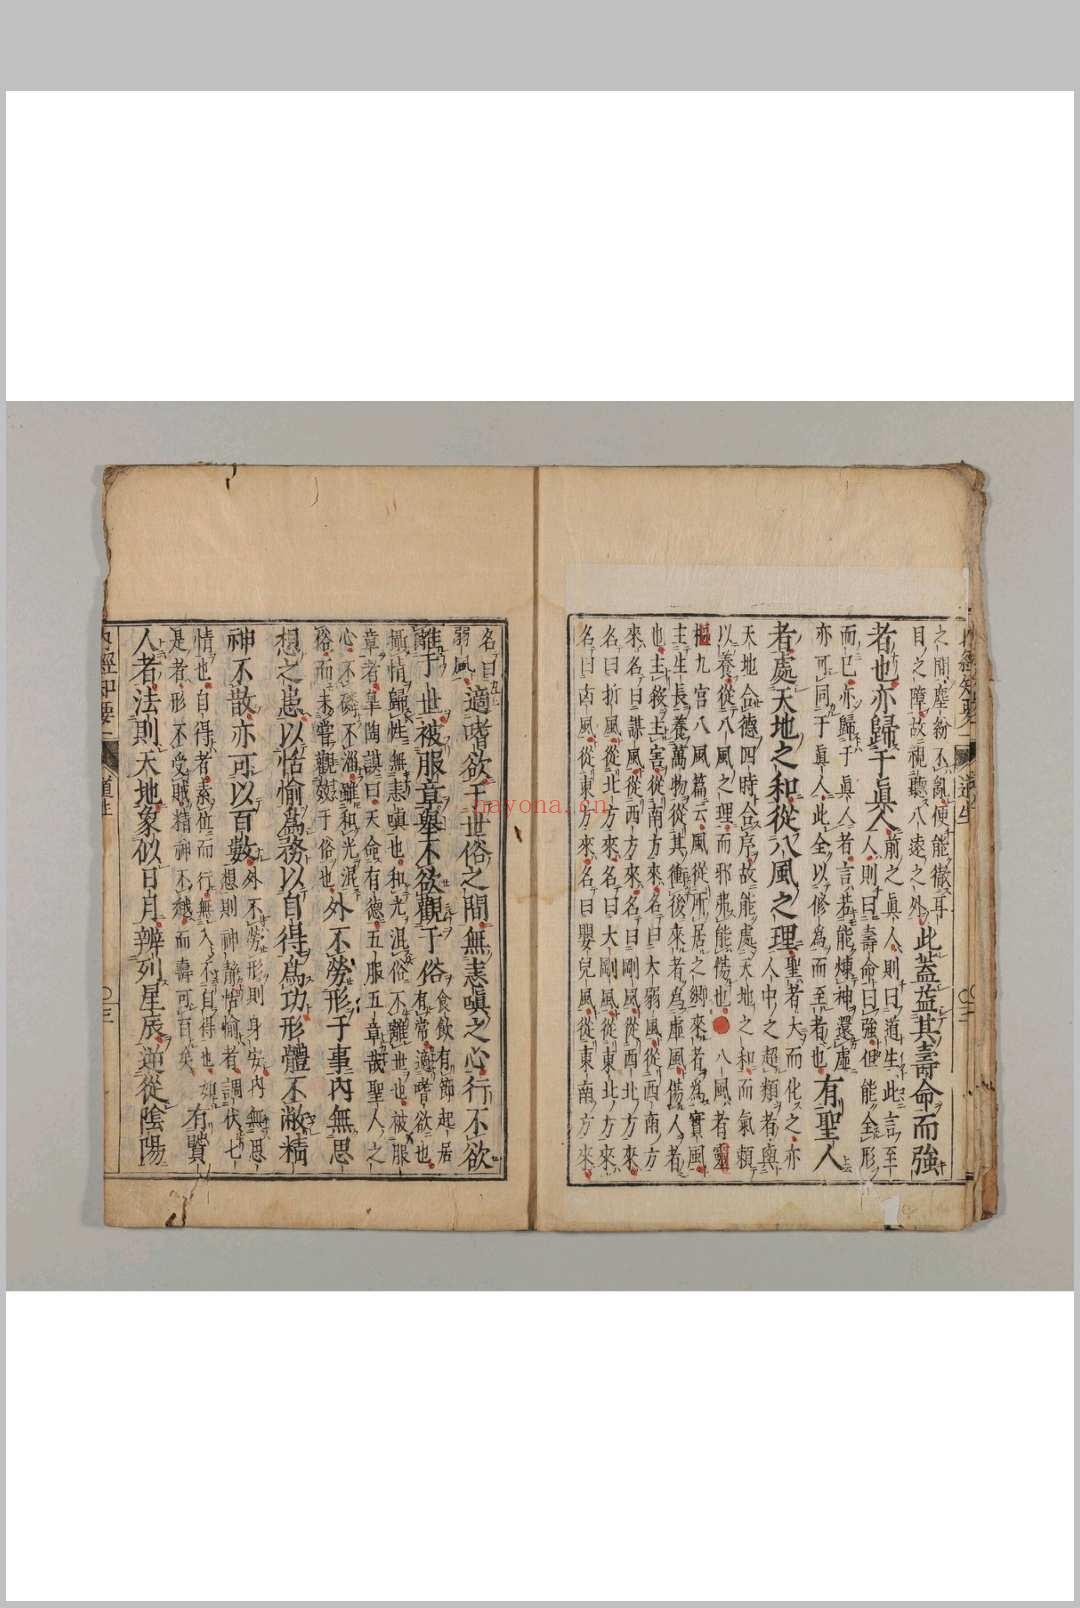 內經知要一 道生 〇三
之間塵紛不亂便能徹耳
目之障故視聽八遠之外
此蓋益其壽命而強
者也亦歸于眞人
前之眞人則曰道生此言至
人則曰壽命曰強但能全形
而已亦歸于眞人者言若能煉神還虛
亦可同于眞人此全以修為而至者也
有聖人
者處天地之和從八風之理
聖者大而化之亦
人中之超類者與
天地合德四時合序故能處天地之和而氣頼
以養從八風之理而邪弗能傷也 八風者靈
樞九宮八風篇云風從所居之鄉來者為實風
主生長養萬物從其衝後來者為虛風傷人者
也主殺主害從南方來名曰大弱風從西南方
來名曰謀風從西方來名曰剛風從西北方來
名曰折風從北方來名曰大剛風從東北方來
名曰凶風從東方來名曰嬰兒風從東南方來
名曰
弱風
適嗜欲于世俗之間無恚嗔之心行不欲
離于世被服章舉不欲觀于俗
食飲有節起居
有常適嗜欲也
攝情歸性無恚嗔也和光混俗不離世也被服
章者皐陶謨曰天命有德五服五章哉聖人之
心不磷不淄雖和光混
俗而未嘗觀媿于俗也
外不勞形于事內無思
想之患以恬愉為務以自得為功形體不敝精
神不散亦可以百數
外不勞形則身安內無思
想則神靜恬愉者調伏七
情也自得者素位而行無入不自得也如
是者形不受賊精神不越而壽可百矣
有賢
人者法則天地象似日月辨列星辰逆從陰陽
內經知要一 道生 〇三
nayona.cn